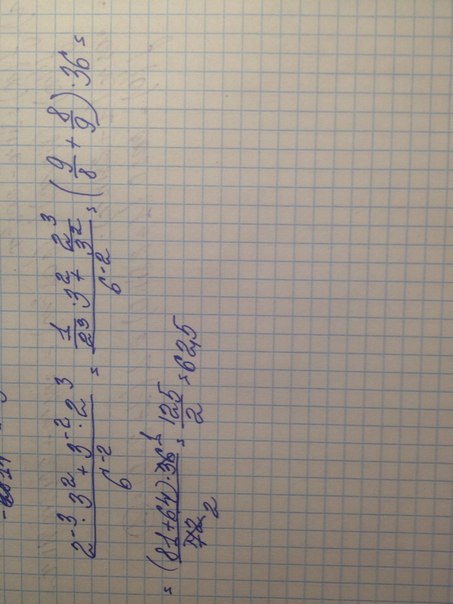 (2^-3 · 3^2 + 3^-2 · 2^3) / 6^-2 = (1/2^3 · 3^2 + 2^3/3^2) / 6^-2 = (9/8 + 8/9) · 36 =
= (81+64) · 36 1 / 72 2 = 125/2 = 62,5